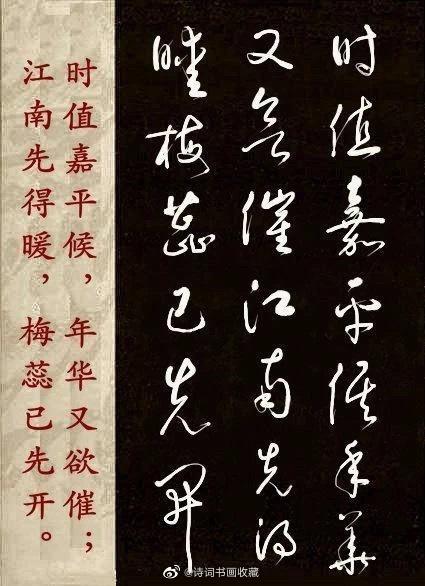 时值嘉平候年华
又欲催江南先得
暖梅蕊已先开
时值嘉平候，年华又欲催；
江南先得暖，梅蕊已先开。
@诗词书画收藏